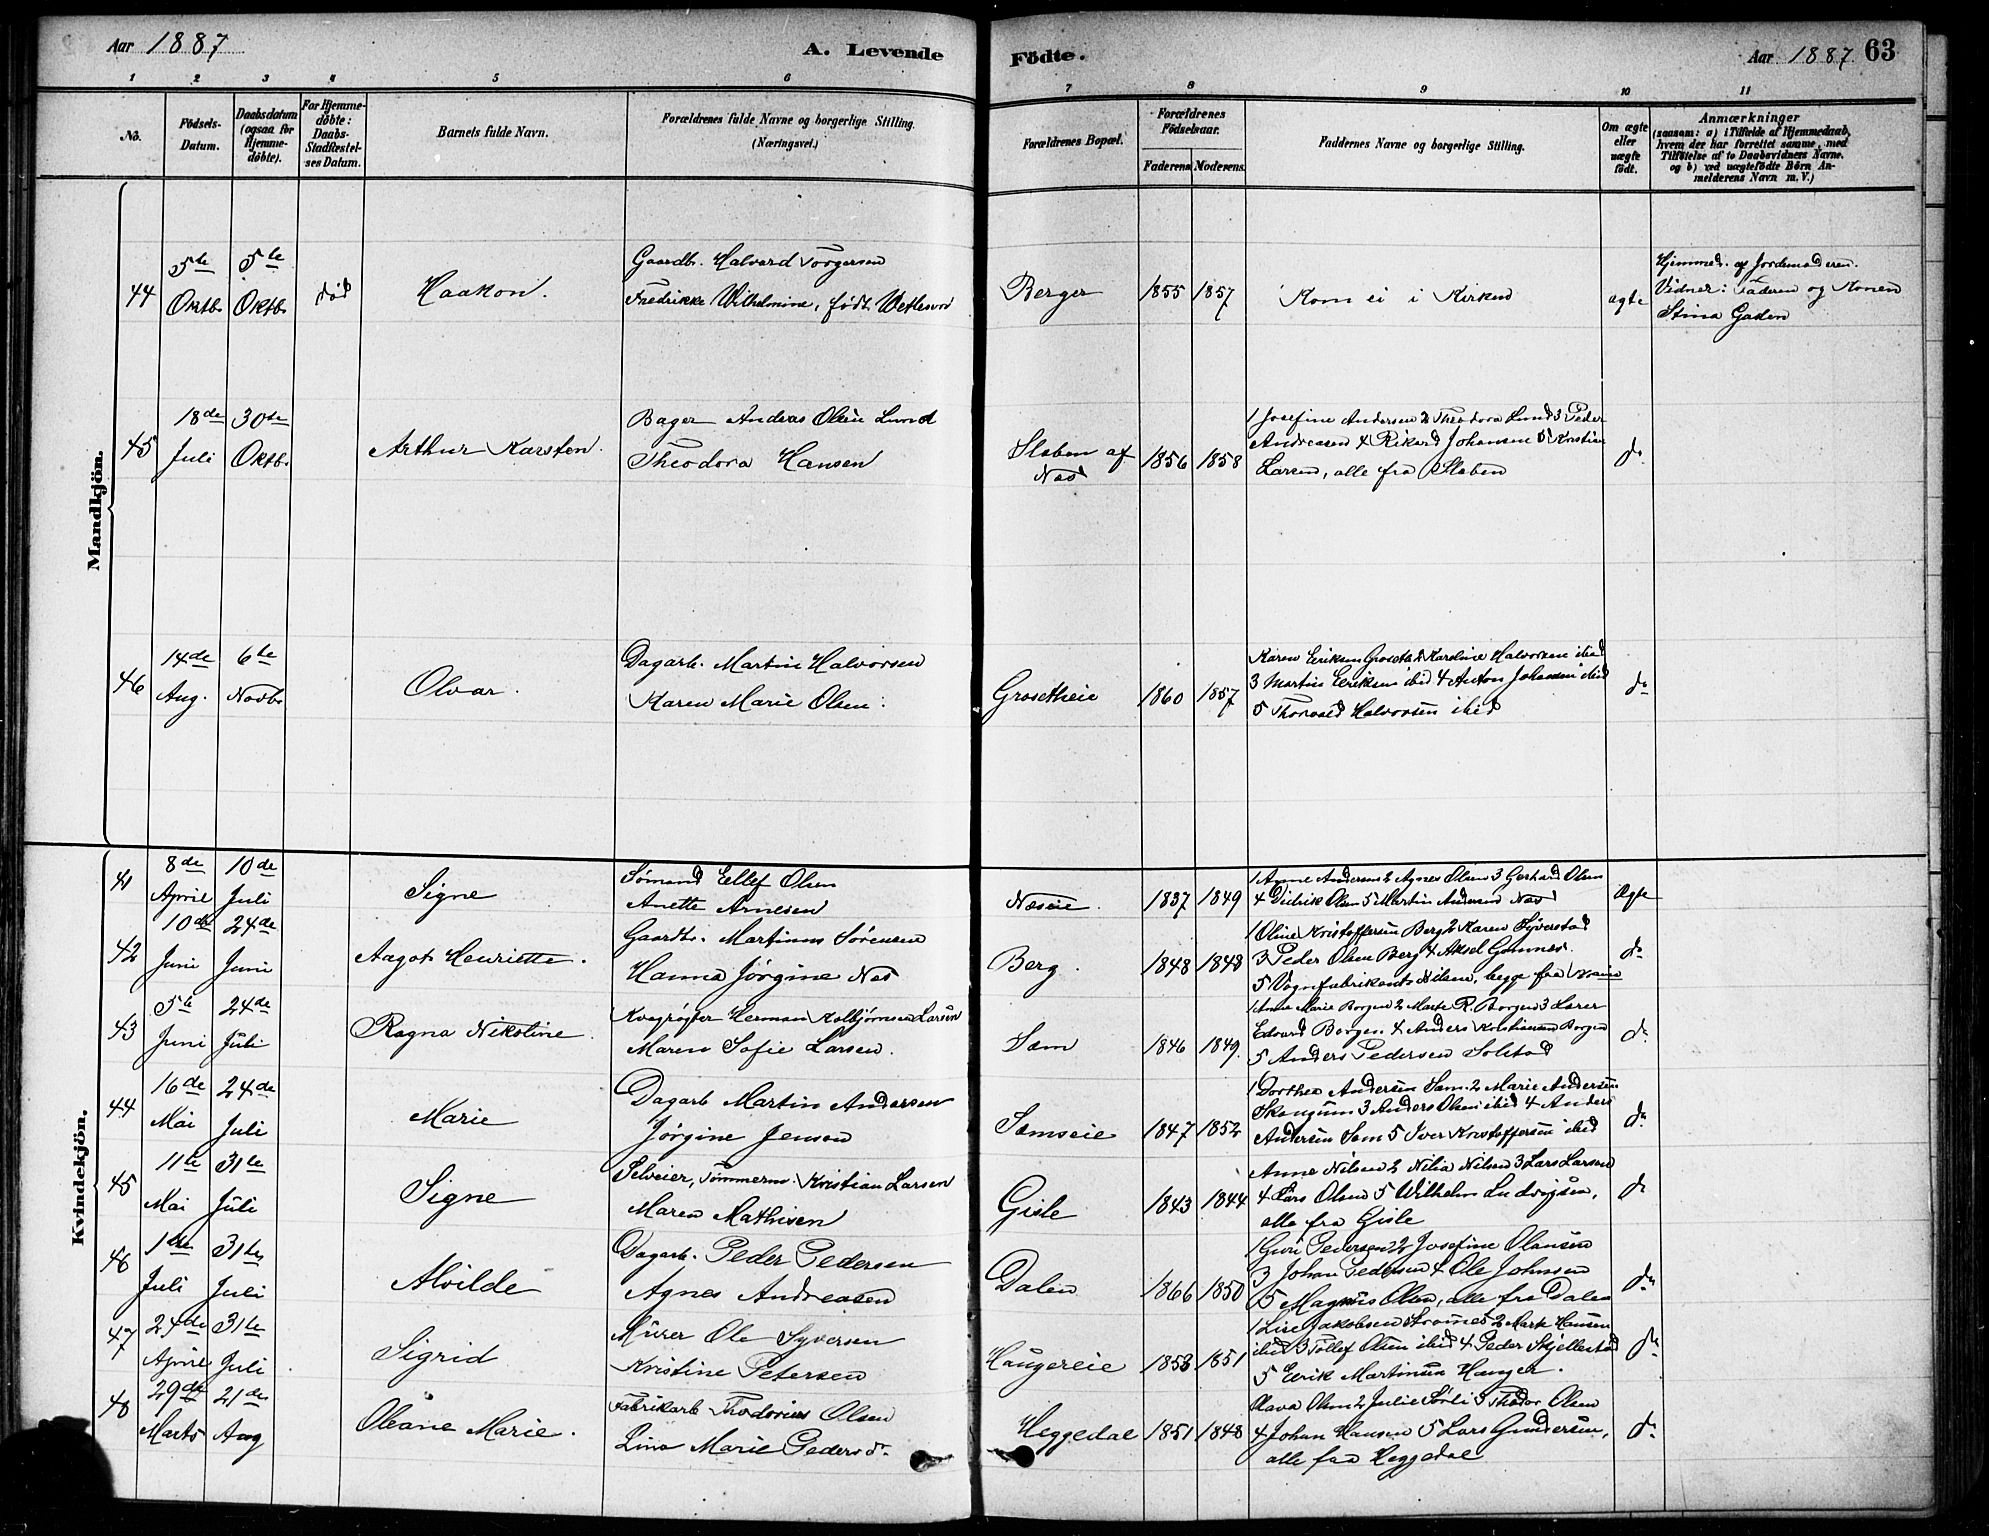 Aar 1887
A. Levende
Födte.
Aar 1887
63
1 2 3 4 5 6 7 8 9 10 11
No.
Födsels-
Datum.
Daabsdatum
(ogsaa for
Hjemme-
döbte).
For Hjemme-
döbte:
Daabs-
Stadfæstel-
ses Datum.
Barnets fulde Navn.
Forældrenes fulde Navne og borgerlige Stilling.
(Næringsvei.)
Forældrenes Bopæl.
Forældrenes
Födselsaar.
Faderens Moderens.
Faddernes Navne og borgerlige Stilling.
Om ægte
eller
uægte
födt.
Anmærkninger
(saasom: a) i Tilfælde af Hjemmedaab,
hvem der har forrettet samme, med
Tilföielse af to Daabsvidners Navne.
og b) ved uægtefödte Börn An-
melderens Navn m. V.)
Mandkjön.
44
5te
Oktb.
5te
Oktb.
død
Haakon.
Gaardb. Halvard Torgersen
Fredrikke Wilhelmine, født Wetlesen
Berger
1855
1857
Kom ei i Kirken
ægte
Hjemmed. af Jordemoderen.
Vidner: Faderen og Konen
Stina Gaden
45
18de
Juli
30te
Oktb.
Arthur Karsten.
Bager Andreas Olsen Lund
Theodora Hansen
Slæben af
Næs
1856
1858
1 Josefine Andersen 2 Theodora Lund 3 Peder
Andreasen 4 Rikard Johansen 5 Kristian
Larsen, alle fra Slæben
do
46
14de
Aug.
6te
Novb.
Olvar.
Dagarb. Martin Halvorsen
Karen Marie Olsen.
Grosetheie
1860
1857
Karen Eriksen Groseth 2 Karoline Halvorsen ibid
3 Martin Eriksen ibid 4 Anton Johansen ibid
5 Thorvald Halvorsen ibid
do
Kvindekjön.
41
8de
April
10de
Juli
Signe
Sømand Ellef Olsen
Anette Arnesen
Næseie.
1837
1849
1 Anne Andersen 2 Agnes Olsen 3 Gerhard Olsen
4 Didrik Olsen 5 Martin Andersen Næs
Ægte
42
10de
Juni
24de
Juni
Aagot Henriette.
Gaardbr. Martinus Sørensen
Hanna Jørgine Næs
Berg.
1848
1848
1 Oline Kristoffersen Berg 2 Karen Syverstad
3 Peder Olsen Berg 4 Aksel Gamnes.
5 Vognfabrikant Nilsen, begge fra Krania
do
43
5te
Juni
24de
Juli
Ragna Nikoline.
Kvægrøgter Herman Kolbjørnsen Larsen
Maren Sofie Larsen.
Sem
1846
1849.
1 Anne Marie Borgen 2 Marte R. Borgen 3 Lærer
Edvard Borgen 4 Anders Kristiansen Borgen
5 Anders Pedersen Solstad
do
44
16de
Mai
24de
Juli
Marie
Dagarb. Martin Andersen
Jørgine Jensen
Semseie
1847
1852
1 Dorthea Andersen Sem. 2 Marie Andersen
Skaugum 3 Anders Olsen ibid 4 Anders
Andersen Sem 5 Iver Kristoffersen ibid
do
45
11te
Mai
31te
Juli
Signe
Selveier, Tømmerm. Kristian Larsen
Maren Mathisen
Gisle
1843
1844
Anne Nilsen 2 Nilia Nilsen 3 Lars Larsen
4 Lars Olsen 5 Wilhelm Ludvigsen,
alle fra Gisle
do
46
1ste
Juli
31te
Juli
Alvilde
Dagarb. Peder Pedersen
Agnes Andreasen
Dalen
1866
1850
1 Guri Pedersen 2 Josefine Olausen
3 Johan Pedersen 4 Ole Johnsen
5 Magnus Olsen, alle fra Dalen
do
47
24de
April
31te
Juli
Sigrid
Murer Ole Syversen
Kristine Petersen
Haugereie
1853
1851
1 Lise Jakobsen 2 Marte Hansen
ibid 3 Tollef Olsen ibid 4 Peder Skjellestad
5 Erik Martinsen Hauger.
do
48
29de
Marts
21de
Aug
Oleane Marie.
Fabrikarb Theodorius Olsen
Lina Marie Pedersd.
Heggedal
1851
1848
Olava Olsen 2 Julie Sørli 3 Thedor Olsen
4 Johan Hansen 5 Lars Gundersen,
alle fra Heggedal
do